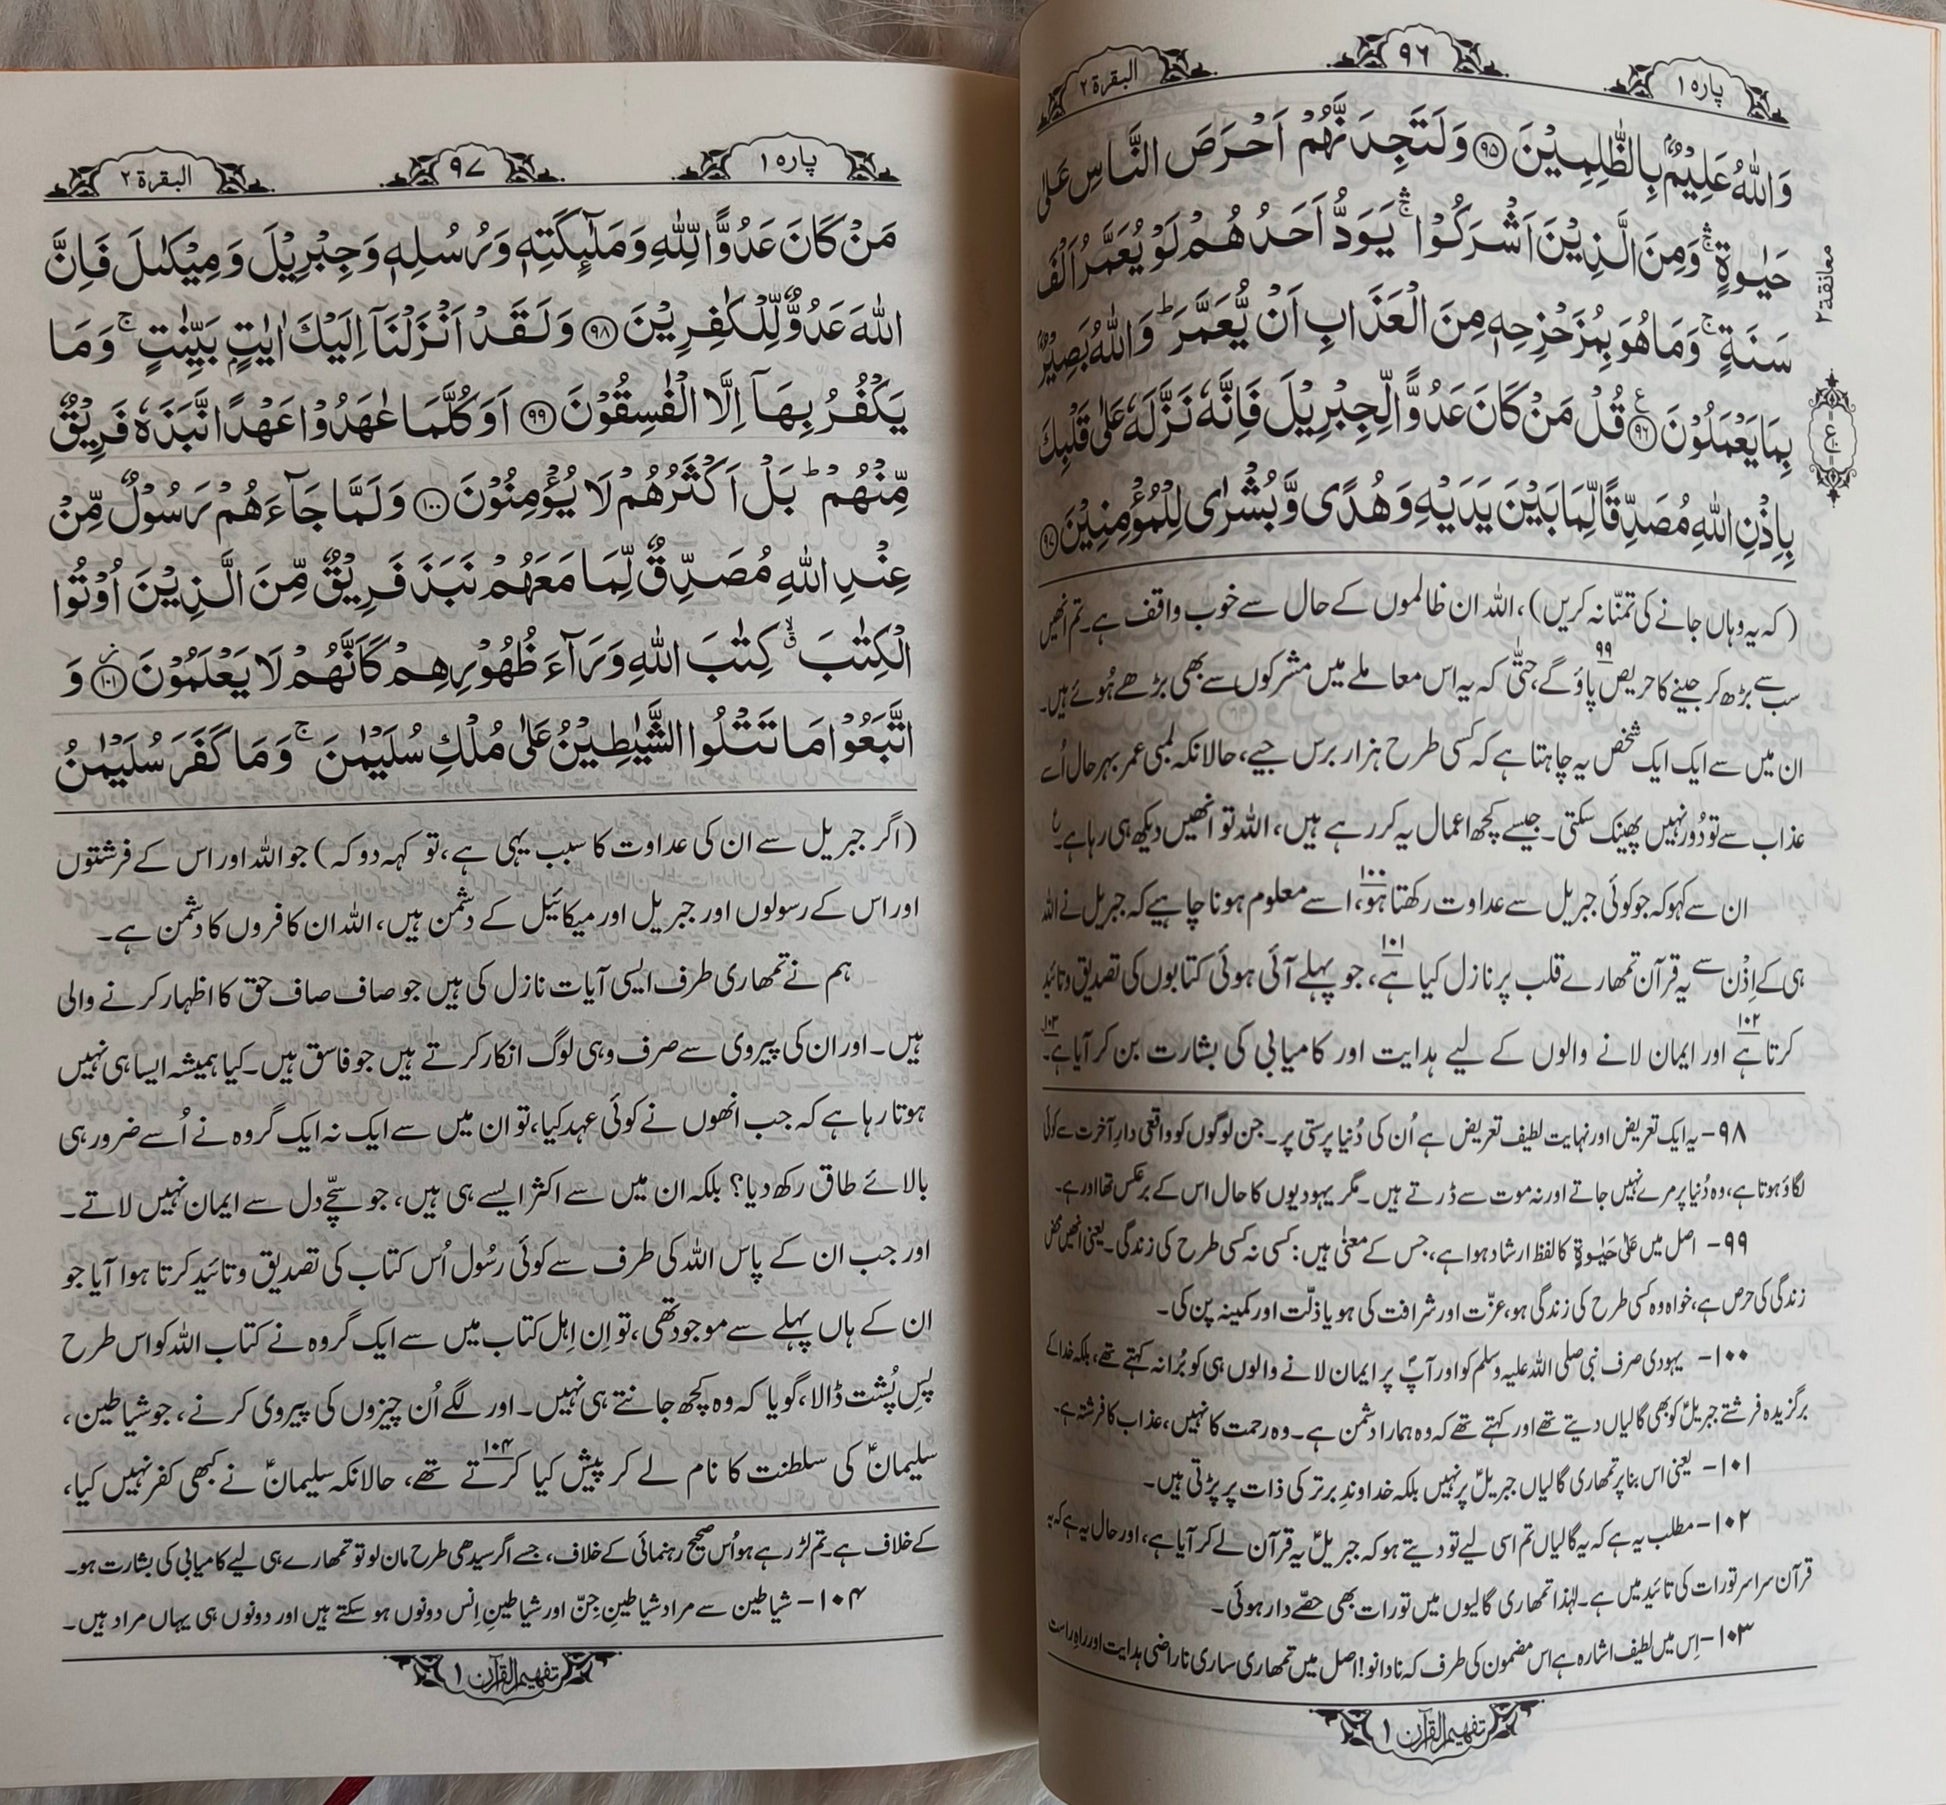 پارہ ۱
۹۶
البقرۃ ۲
وَاللّٰهُ عَلِيْمٌۢ بِالظّٰلِمِيْنَ ﴿۹۵﴾ وَلَتَجِدَنَّهُمْ اَحْرَصَ النَّاسِ عَلٰى
حَيٰوةٍ ۛۚ وَمِنَ الَّذِيْنَ اَشْرَكُوْا ۛۚ يَوَدُّ اَحَدُهُمْ لَوْ يُعَمَّرُ اَلْفَ
سَنَةٍ ۚ وَمَا هُوَ بِمُزَحْزِحِهٖ مِنَ الْعَذَابِ اَنْ يُّعَمَّرَ ؕ وَاللّٰهُ بَصِيْرٌۢ
بِمَا يَعْمَلُوْنَ ﴿۹۶﴾ قُلْ مَنْ كَانَ عَدُوًّا لِّجِبْرِيْلَ فَاِنَّهٗ نَزَّلَهٗ عَلٰى قَلْبِكَ
بِاِذْنِ اللّٰهِ مُصَدِّقًا لِّمَا بَيْنَ يَدَيْهِ وَهُدًى وَّبُشْرٰى لِلْمُؤْمِنِيْنَ ﴿۹۷﴾
معانقة ۲
(کہ یہ وہاں جانے کی تمنّا نہ کریں)، اللہ ان ظالموں کے حال سے خوب واقف ہے۔ تم انھیں
سب سے بڑھ کر جینے کا حریص پاؤ گے،۹۹ حتّٰی کہ یہ اس معاملے میں مشرکوں سے بھی بڑھے ہُوئے ہیں۔
ان میں سے ایک ایک شخص یہ چاہتا ہے کہ کسی طرح ہزار برس جیے، حالانکہ لمبی عمر بہرحال اُسے
عذاب سے تو دُور نہیں پھینک سکتی۔ جیسے کچھ اعمال یہ کر رہے ہیں، اللہ تو انھیں دیکھ ہی رہا ہے۔ ع
ان سے کہو کہ جو کوئی جبریل سے عداوت رکھتا ہو،۱۰۰ اسے معلوم ہونا چاہیے کہ جبریل نے اللہ
ہی کے اِذْن سے یہ قرآن تمھارے قلب پر نازل کیا ہے،۱۰۱ جو پہلے آئی ہوئی کتابوں کی تصدیق و تائید
کرتا ہے۱۰۲ اور ایمان لانے والوں کے لیے ہدایت اور کامیابی کی بشارت بن کر آیا ہے۔۱۰۳
۹۸- یہ ایک تعریض اور نہایت لطیف تعریض ہے اُن کی دُنیا پرستی پر۔ جن لوگوں کو واقعی دارِ آخرت سے کوئی
لگاؤ ہوتا ہے، وہ دُنیا پر مرے نہیں جاتے اور نہ موت سے ڈرتے ہیں۔ مگر یہودیوں کا حال اس کے برعکس تھا اور ہے۔
۹۹- اصل میں عَلٰی حَیٰوۃٍ کا لفظ ارشاد ہوا ہے، جس کے معنٰی ہیں: کسی نہ کسی طرح کی زندگی۔ یعنی انھیں محض
زندگی کی حرص ہے، خواہ وہ کسی طرح کی زندگی ہو، عزّت اور شرافت کی ہو یا ذلّت اور کمینہ پن کی۔
۱۰۰- یہودی صرف نبی صلی اللہ علیہ وسلم کو اور آپؐ پر ایمان لانے والوں ہی کو بُرا نہ کہتے تھے، بلکہ خدا کے
برگزیدہ فرشتے جبریلؑ کو بھی گالیاں دیتے تھے اور کہتے تھے کہ وہ ہمارا دشمن ہے۔ وہ رحمت کا نہیں، عذاب کا فرشتہ ہے۔
۱۰۱- یعنی اس بنا پر تمھاری گالیاں جبریلؑ پر نہیں بلکہ خداوندِ برتر کی ذات پر پڑتی ہیں۔
۱۰۲- مطلب یہ ہے کہ یہ گالیاں تم اسی لیے تو دیتے ہو کہ جبریلؑ یہ قرآن لے کر آیا ہے، اور حال یہ ہے کہ یہ
قرآن سراسر تورات کی تائید میں ہے۔ لہٰذا تمھاری گالیوں میں تورات بھی حصّے دار ہوئی۔
۱۰۳- اِس میں لطیف اشارہ ہے اس مضمون کی طرف کہ نادانو! اصل میں تمھاری ساری ناراضی ہدایت اور راہِ راست
تفہیم القرآن ۱
پارہ ۱
۹۷
البقرۃ ۲
مَنْ كَانَ عَدُوًّا لِّلّٰهِ وَمَلٰٓئِكَتِهٖ وَرُسُلِهٖ وَجِبْرِيْلَ وَمِيْكٰىلَ فَاِنَّ
اللّٰهَ عَدُوٌّ لِّلْكٰفِرِيْنَ ﴿۹۸﴾ وَلَقَدْ اَنْزَلْنَاۤ اِلَيْكَ اٰيٰتٍۭ بَيِّنٰتٍ ۚ وَمَا
يَكْفُرُ بِهَاۤ اِلَّا الْفٰسِقُوْنَ ﴿۹۹﴾ اَوَكُلَّمَا عٰهَدُوْا عَهْدًا نَّبَذَهٗ فَرِيْقٌ
مِّنْهُمْ ؕ بَلْ اَكْثَرُهُمْ لَا يُؤْمِنُوْنَ ﴿۱۰۰﴾ وَلَمَّا جَآءَهُمْ رَسُوْلٌ مِّنْ
عِنْدِ اللّٰهِ مُصَدِّقٌ لِّمَا مَعَهُمْ نَبَذَ فَرِيْقٌ مِّنَ الَّذِيْنَ اُوْتُوا
الْكِتٰبَ ۙۗ كِتٰبَ اللّٰهِ وَرَآءَ ظُهُوْرِهِمْ كَاَنَّهُمْ لَا يَعْلَمُوْنَ ﴿۱۰۱﴾ وَ
اتَّبَعُوْا مَا تَتْلُوا الشَّيٰطِيْنُ عَلٰى مُلْكِ سُلَيْمٰنَ ۚ وَمَا كَفَرَ سُلَيْمٰنُ
(اگر جبریل سے ان کی عداوت کا سبب یہی ہے، تو کہہ دو کہ) جو اللہ اور اس کے فرشتوں
اور اس کے رسولوں اور جبریل اور میکائیل کے دشمن ہیں، اللہ ان کافروں کا دشمن ہے۔
ہم نے تمھاری طرف ایسی آیات نازل کی ہیں جو صاف صاف حق کا اظہار کرنے والی
ہیں۔ اور ان کی پیروی سے صرف وہی لوگ انکار کرتے ہیں جو فاسق ہیں۔ کیا ہمیشہ ایسا ہی نہیں
ہوتا رہا ہے کہ جب انھوں نے کوئی عہد کیا، تو ان میں سے ایک نہ ایک گروہ نے اُسے ضرور ہی
بالائے طاق رکھ دیا؟ بلکہ ان میں سے اکثر ایسے ہی ہیں، جو سچّے دل سے ایمان نہیں لاتے۔
اور جب ان کے پاس اللہ کی طرف سے کوئی رسُول اُس کتاب کی تصدیق و تائید کرتا ہوا آیا جو
ان کے ہاں پہلے سے موجود تھی، تو اِن اہل کتاب میں سے ایک گروہ نے کتاب اللہ کو اس طرح
پسِ پُشت ڈالا، گویا کہ وہ کچھ جانتے ہی نہیں۔ اور لگے اُن چیزوں کی پیروی کرنے، جو شیاطین،
سلیمانؑ کی سلطنت کا نام لے کر پیش کیا کرتے تھے،۱۰۴ حالانکہ سلیمانؑ نے کبھی کفر نہیں کیا،
کے خلاف ہے۔ تم لڑ رہے ہو اُس صحیح رہنمائی کے خلاف، جسے اگر سیدھی طرح مان لو تو تمھارے ہی لیے کامیابی کی بشارت ہو۔
۱۰۴- شیاطین سے مراد شیاطینِ جِنّ اور شیاطینِ اِنس دونوں ہو سکتے ہیں اور دونوں ہی یہاں مراد ہیں۔
تفہیم القرآن ۱